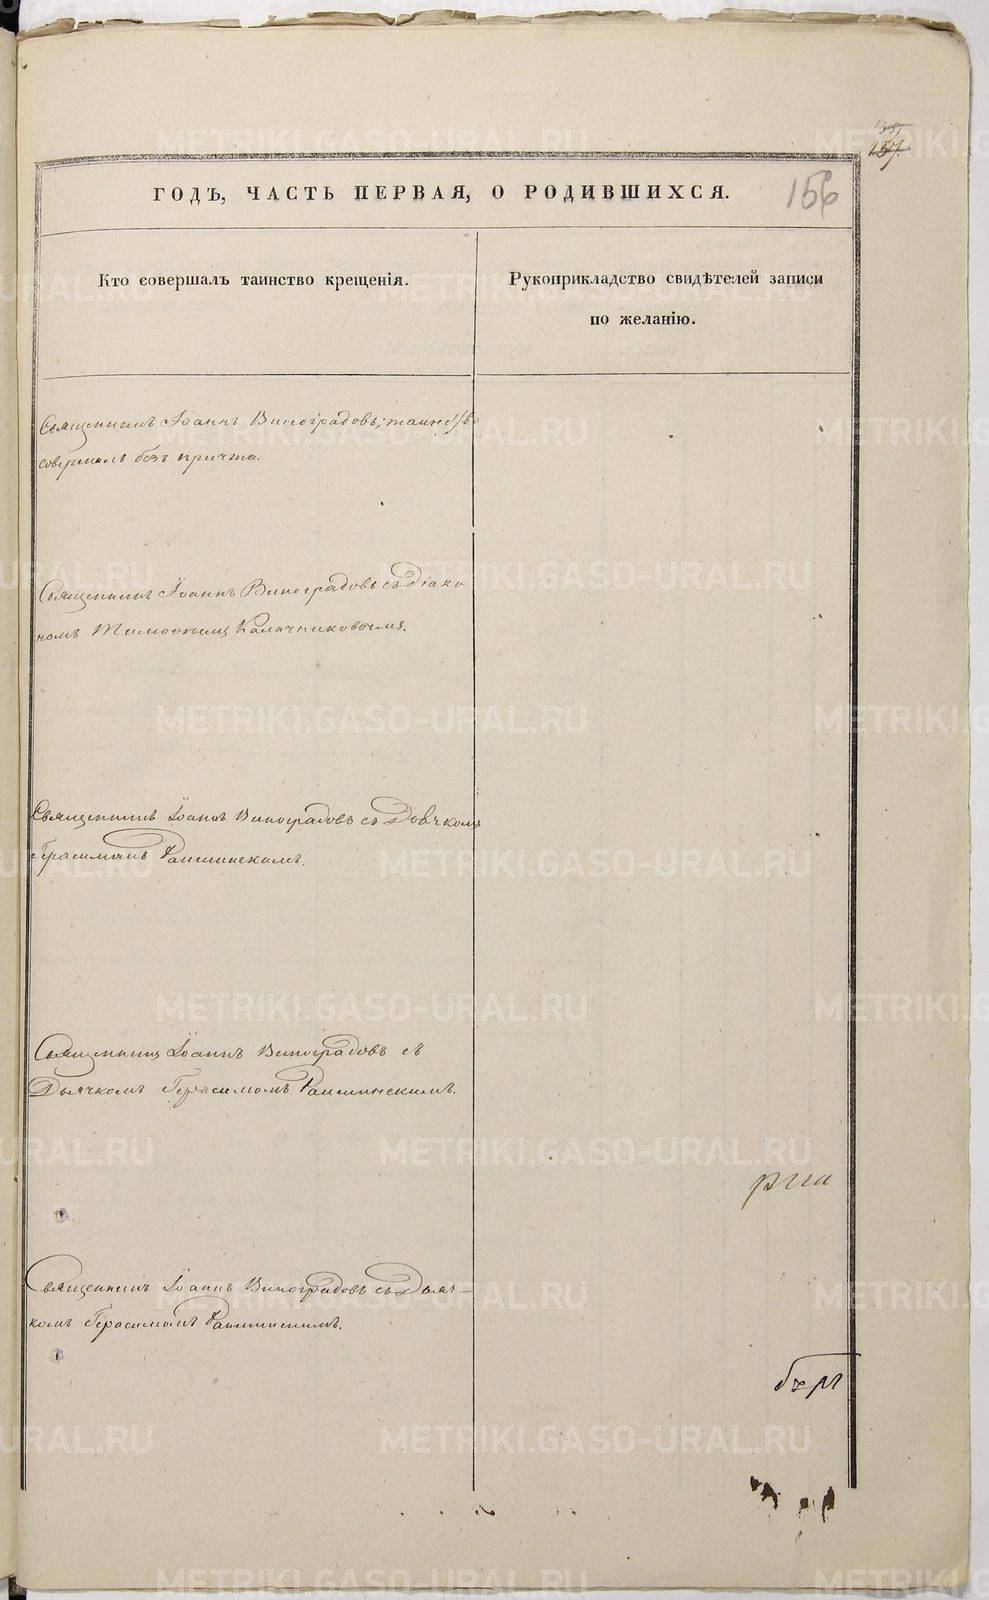 157
156
ГОДЪ, ЧАСТЬ ПЕРВАЯ, О РОДИВШИХСЯ.
Кто совершалъ таинство крещенія.
Рукоприкладство свидѣтелей записи
по желанію.
Священникъ Іоаннъ Виноградовъ, таинство
совершалъ безъ причта.
Священникъ Іоаннъ Виноградовъ съ Діако
номъ Тимоѳеемъ Калачниковымъ.
Священникъ Іоаннъ Виноградовъ съ Дьячкомъ
Герасимомъ
Священникъ Іоаннъ Виноградовъ съ
Дьячкомъ Герасимомъ
Священникъ Іоаннъ Виноградовъ съ Дьяч-
комъ Герасимомъ
METRIKI.GASO-URAL.RU